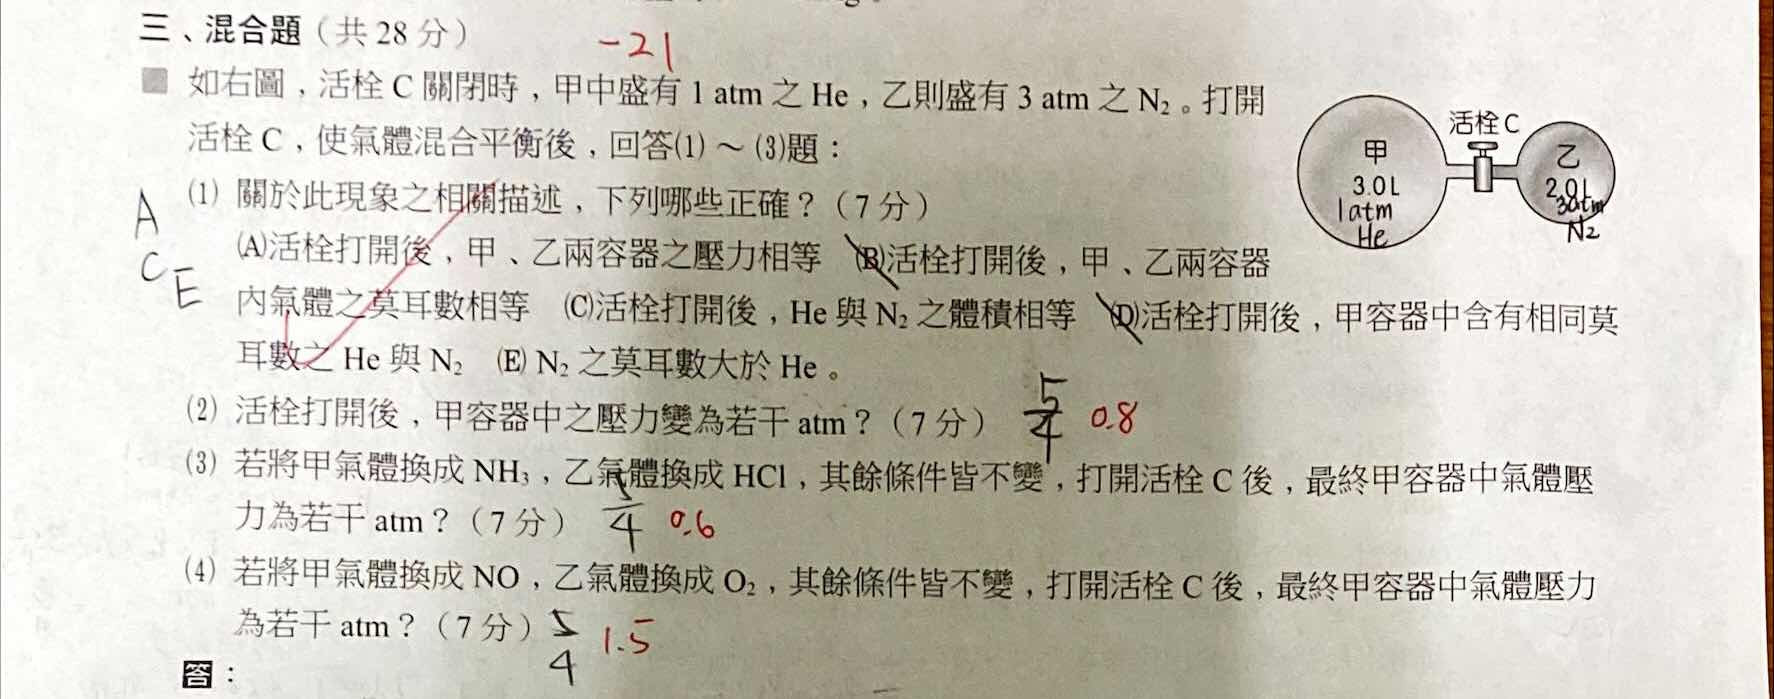 三、混合題（共28分） -21
如右圖，活栓C關閉時，甲中盛有1 atm之He，乙則盛有3 atm之N₂。打開
活栓C，使氣體混合平衡後，回答⑴～⑶題：
活栓C
甲
3.0L
1atm
He
乙
2.0L
3atm
N2
A
C
E
⑴ 關於此現象之相關描述，下列哪些正確？（7分）
(A)活栓打開後，甲、乙兩容器之壓力相等 (B)活栓打開後，甲、乙兩容器
內氣體之莫耳數相等 (C)活栓打開後，He與N₂之體積相等 (D)活栓打開後，甲容器中含有相同莫
耳數之He與N₂ (E) N₂之莫耳數大於He。
⑵ 活栓打開後，甲容器中之壓力變為若干atm？（7分） 5/4 0.8
⑶ 若將甲氣體換成NH₃，乙氣體換成HCl，其餘條件皆不變，打開活栓C後，最終甲容器中氣體壓
力為若干atm？（7分） 5/4 0.6
⑷ 若將甲氣體換成NO，乙氣體換成O₂，其餘條件皆不變，打開活栓C後，最終甲容器中氣體壓力
為若干atm？（7分） 5/4 1.5
答：